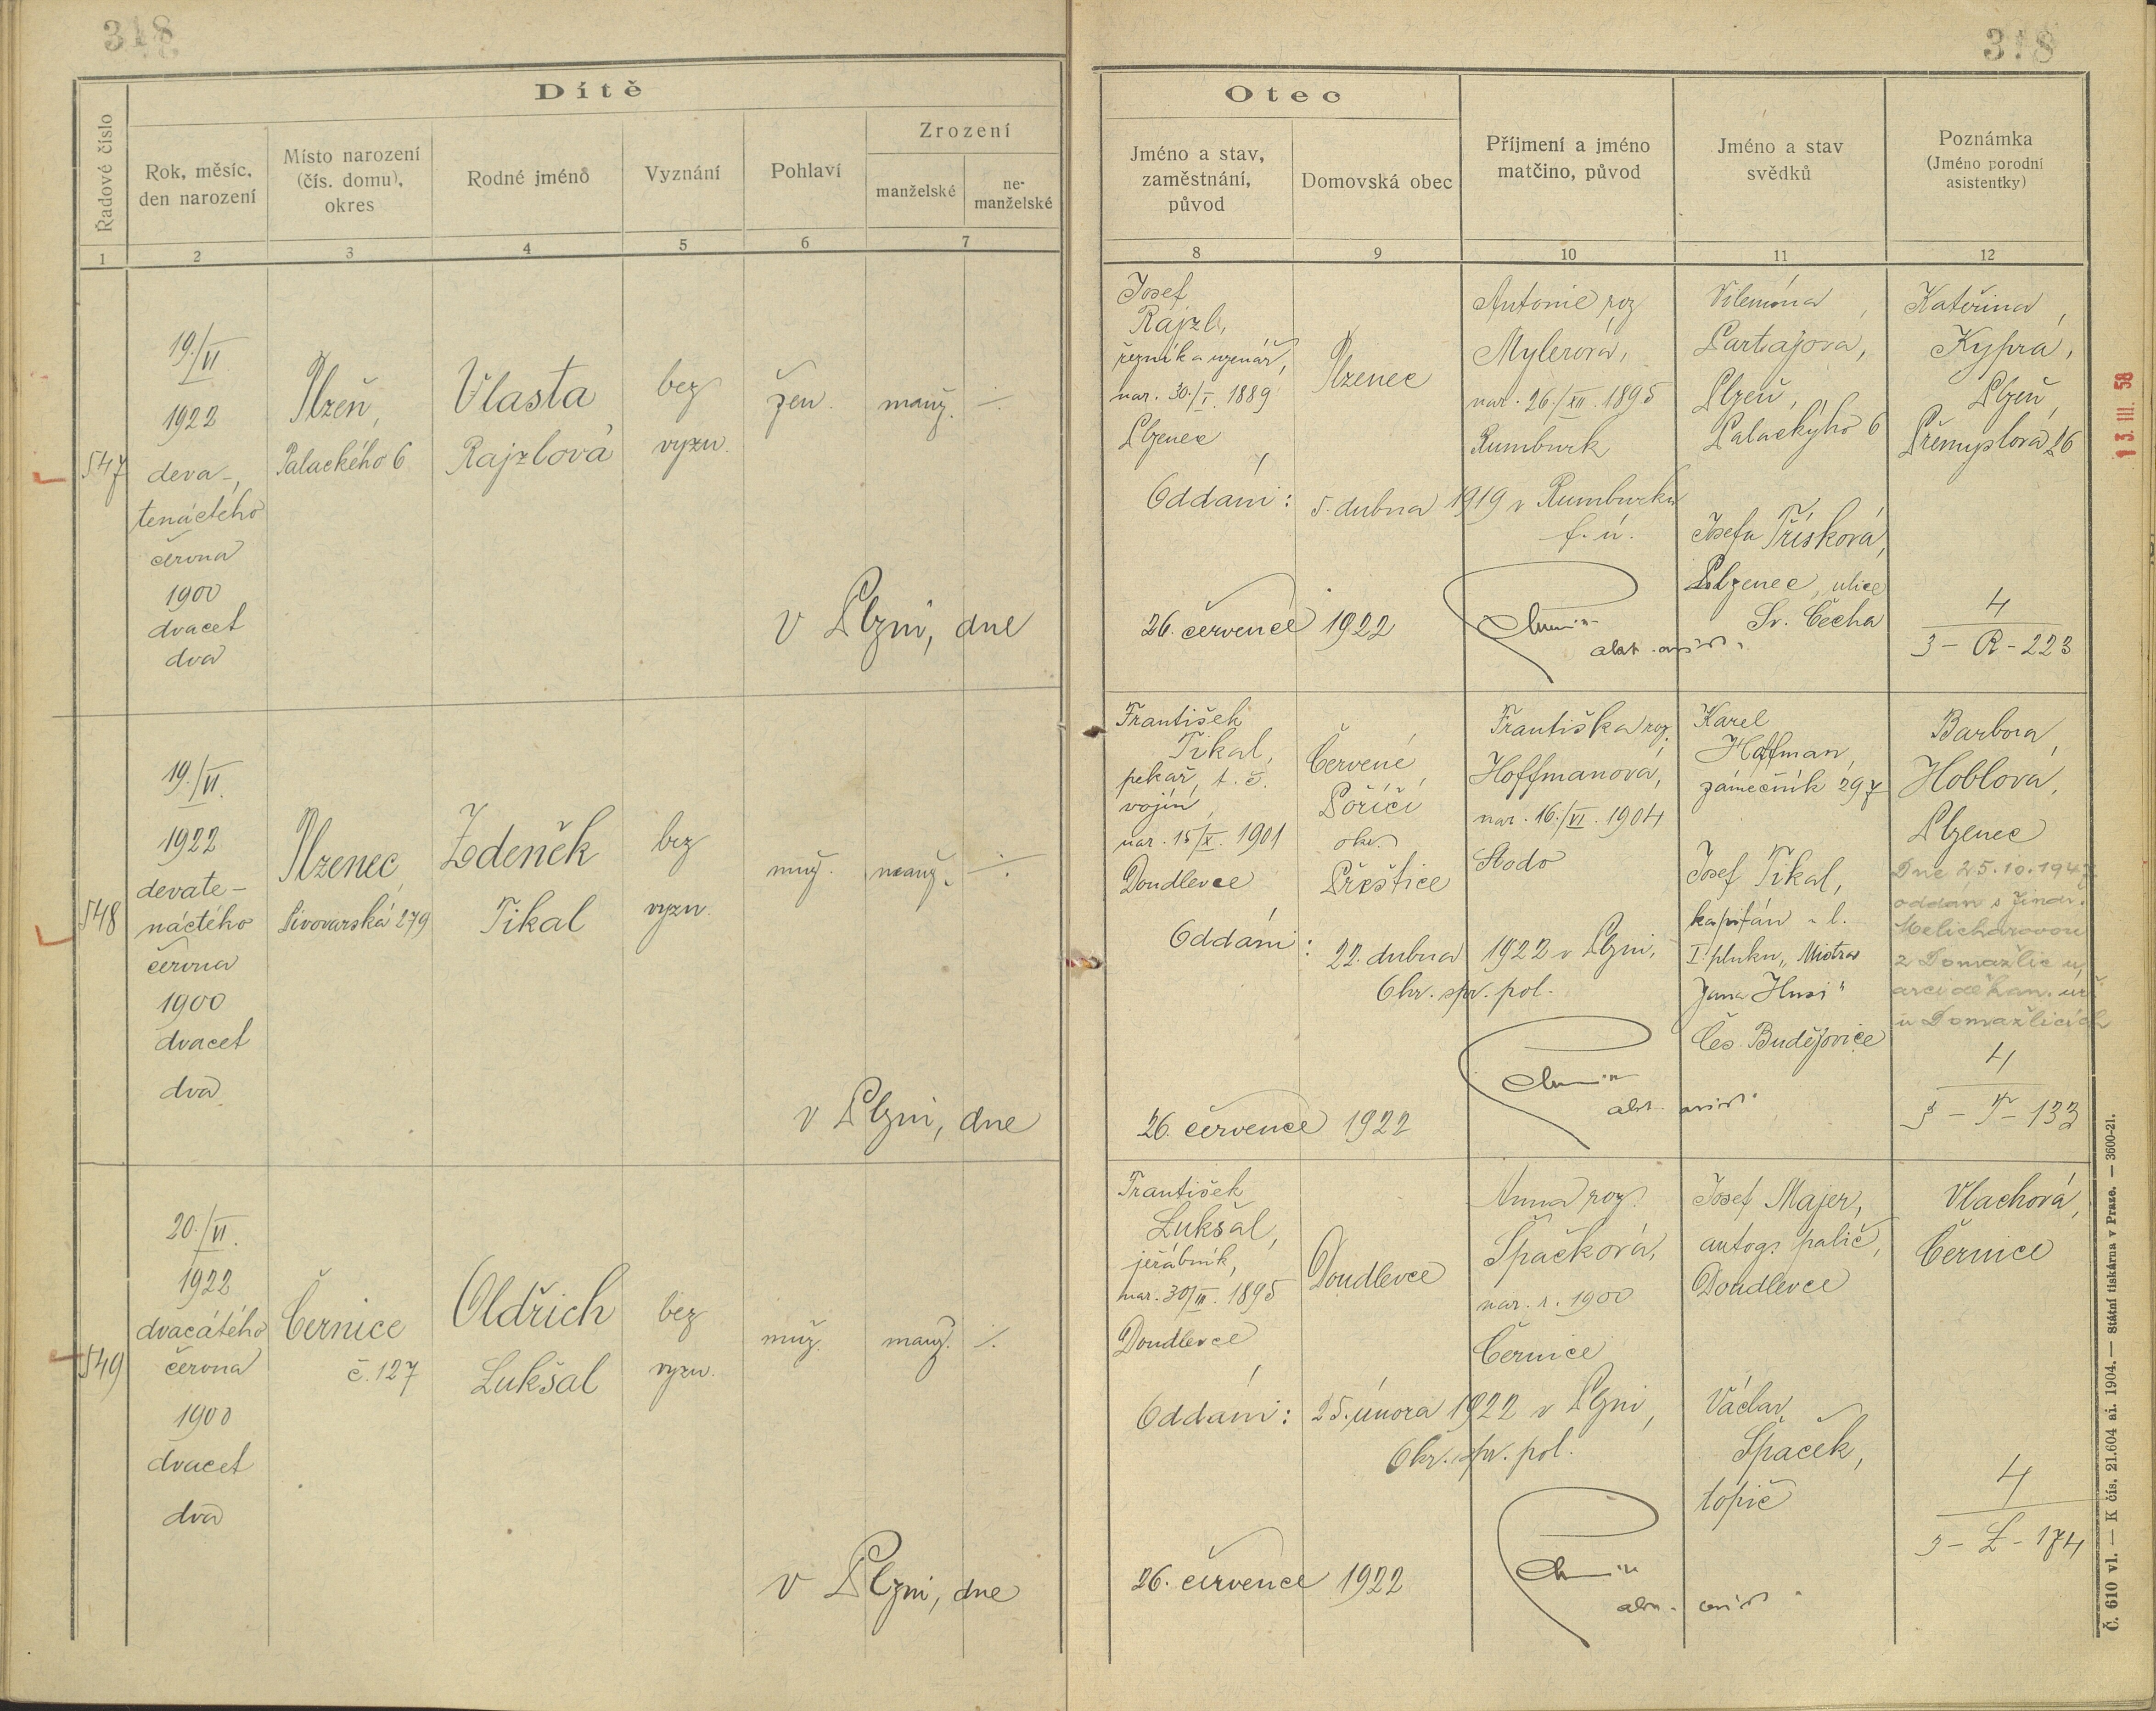 318
318
Dítě
Řadové číslo
Rok, měsíc,
den narození
Místo narození
(čís. domu),
okres
Rodné jméno
Vyznání
Pohlaví
Zrození
manželské
ne-
manželské
1
2
3
4
5
6
7
Otec
Jméno a stav,
zaměstnání,
původ
Domovská obec
Příjmení a jméno
matčino, původ
Jméno a stav
svědků
Poznámka
(Jméno porodní
asistentky)
8
9
10
11
12
547
19./VI
1922
deva-
tenáctého
června
1900
dvacet
dva
Plzeň,
Palackého 6
Vlasta
Rajzlová
bez
vyzn.
žen.
manž.
v Plzni, dne
Josef
Rajzl,
řezník a uzenář,
nar. 30./I. 1889
Plzenec
Plzenec
Antonie roz
Mylerová,
nar. 26./XII. 1895
Rumburk
Vilemína
Plzeň,
Palackýho 6
Kateřina
Kyprá,
Plzeň
Přemyslova 26
Oddáni: 5. dubna 1919 v Rumburku
f. ú.
Josefa Třísková,
Plzenec, ulice
Sv. Čecha
26. července 1922
4
3 - R - 223
548
19./VI.
1922
devate-
náctého
června
1900
dvacet
dva
Plzenec
Pivovarská 279
Zdeněk
Tikal
bez
vyzn.
muž.
manž.
v Plzni, dne
František
Tikal,
pekař, t. č.
vojín,
nar. 15/X. 1901
Doudlevce
Červené
Poříčí
okr.
Přeštice
Františka roz.
Hoffmanová,
nar. 16./VI. 1904
Stodo
Karel
Hoffman,
zámečník 297
Josef Tikal,
kapitán
I. pluku „Mistra
Jana Husi"
Čes. Budějovice
Barbora
Hoblová,
Plzenec
Dne 25.10.194
oddán s Jindr.
Melicharovou
z Domažlic u
arciděkan. úř.
v Domažlicích
Oddáni: 22. dubna 1922 v Plzni,
Okr. spr. pol.
26. července 1922
4
3 - T - 133
549
20./VI.
1922
dvacátého
června
1900
dvacet
dva
Černice
č. 127
Oldřich
Lukšal
bez
vyzn.
muž.
manž.
v Plzni, dne
František
Lukšal,
jeřábník,
nar. 30/III. 1895
Doudlevce
Doudlevce
Anna roz.
Špačková,
nar. r. 1900
Černice
Josef Majer,
autog. palič,
Doudlevce
Vlachová,
Černice
Oddáni: 25. února 1922 v Plzni,
Okr. spr. pol.
Václav
Špaček,
topič
26. července 1922
4
3 - L - 174
13. III. 58
Č. 610 vl. — K čís. 21.604 ai. 1904. — Státní tiskárna v Praze. — 3600-21.